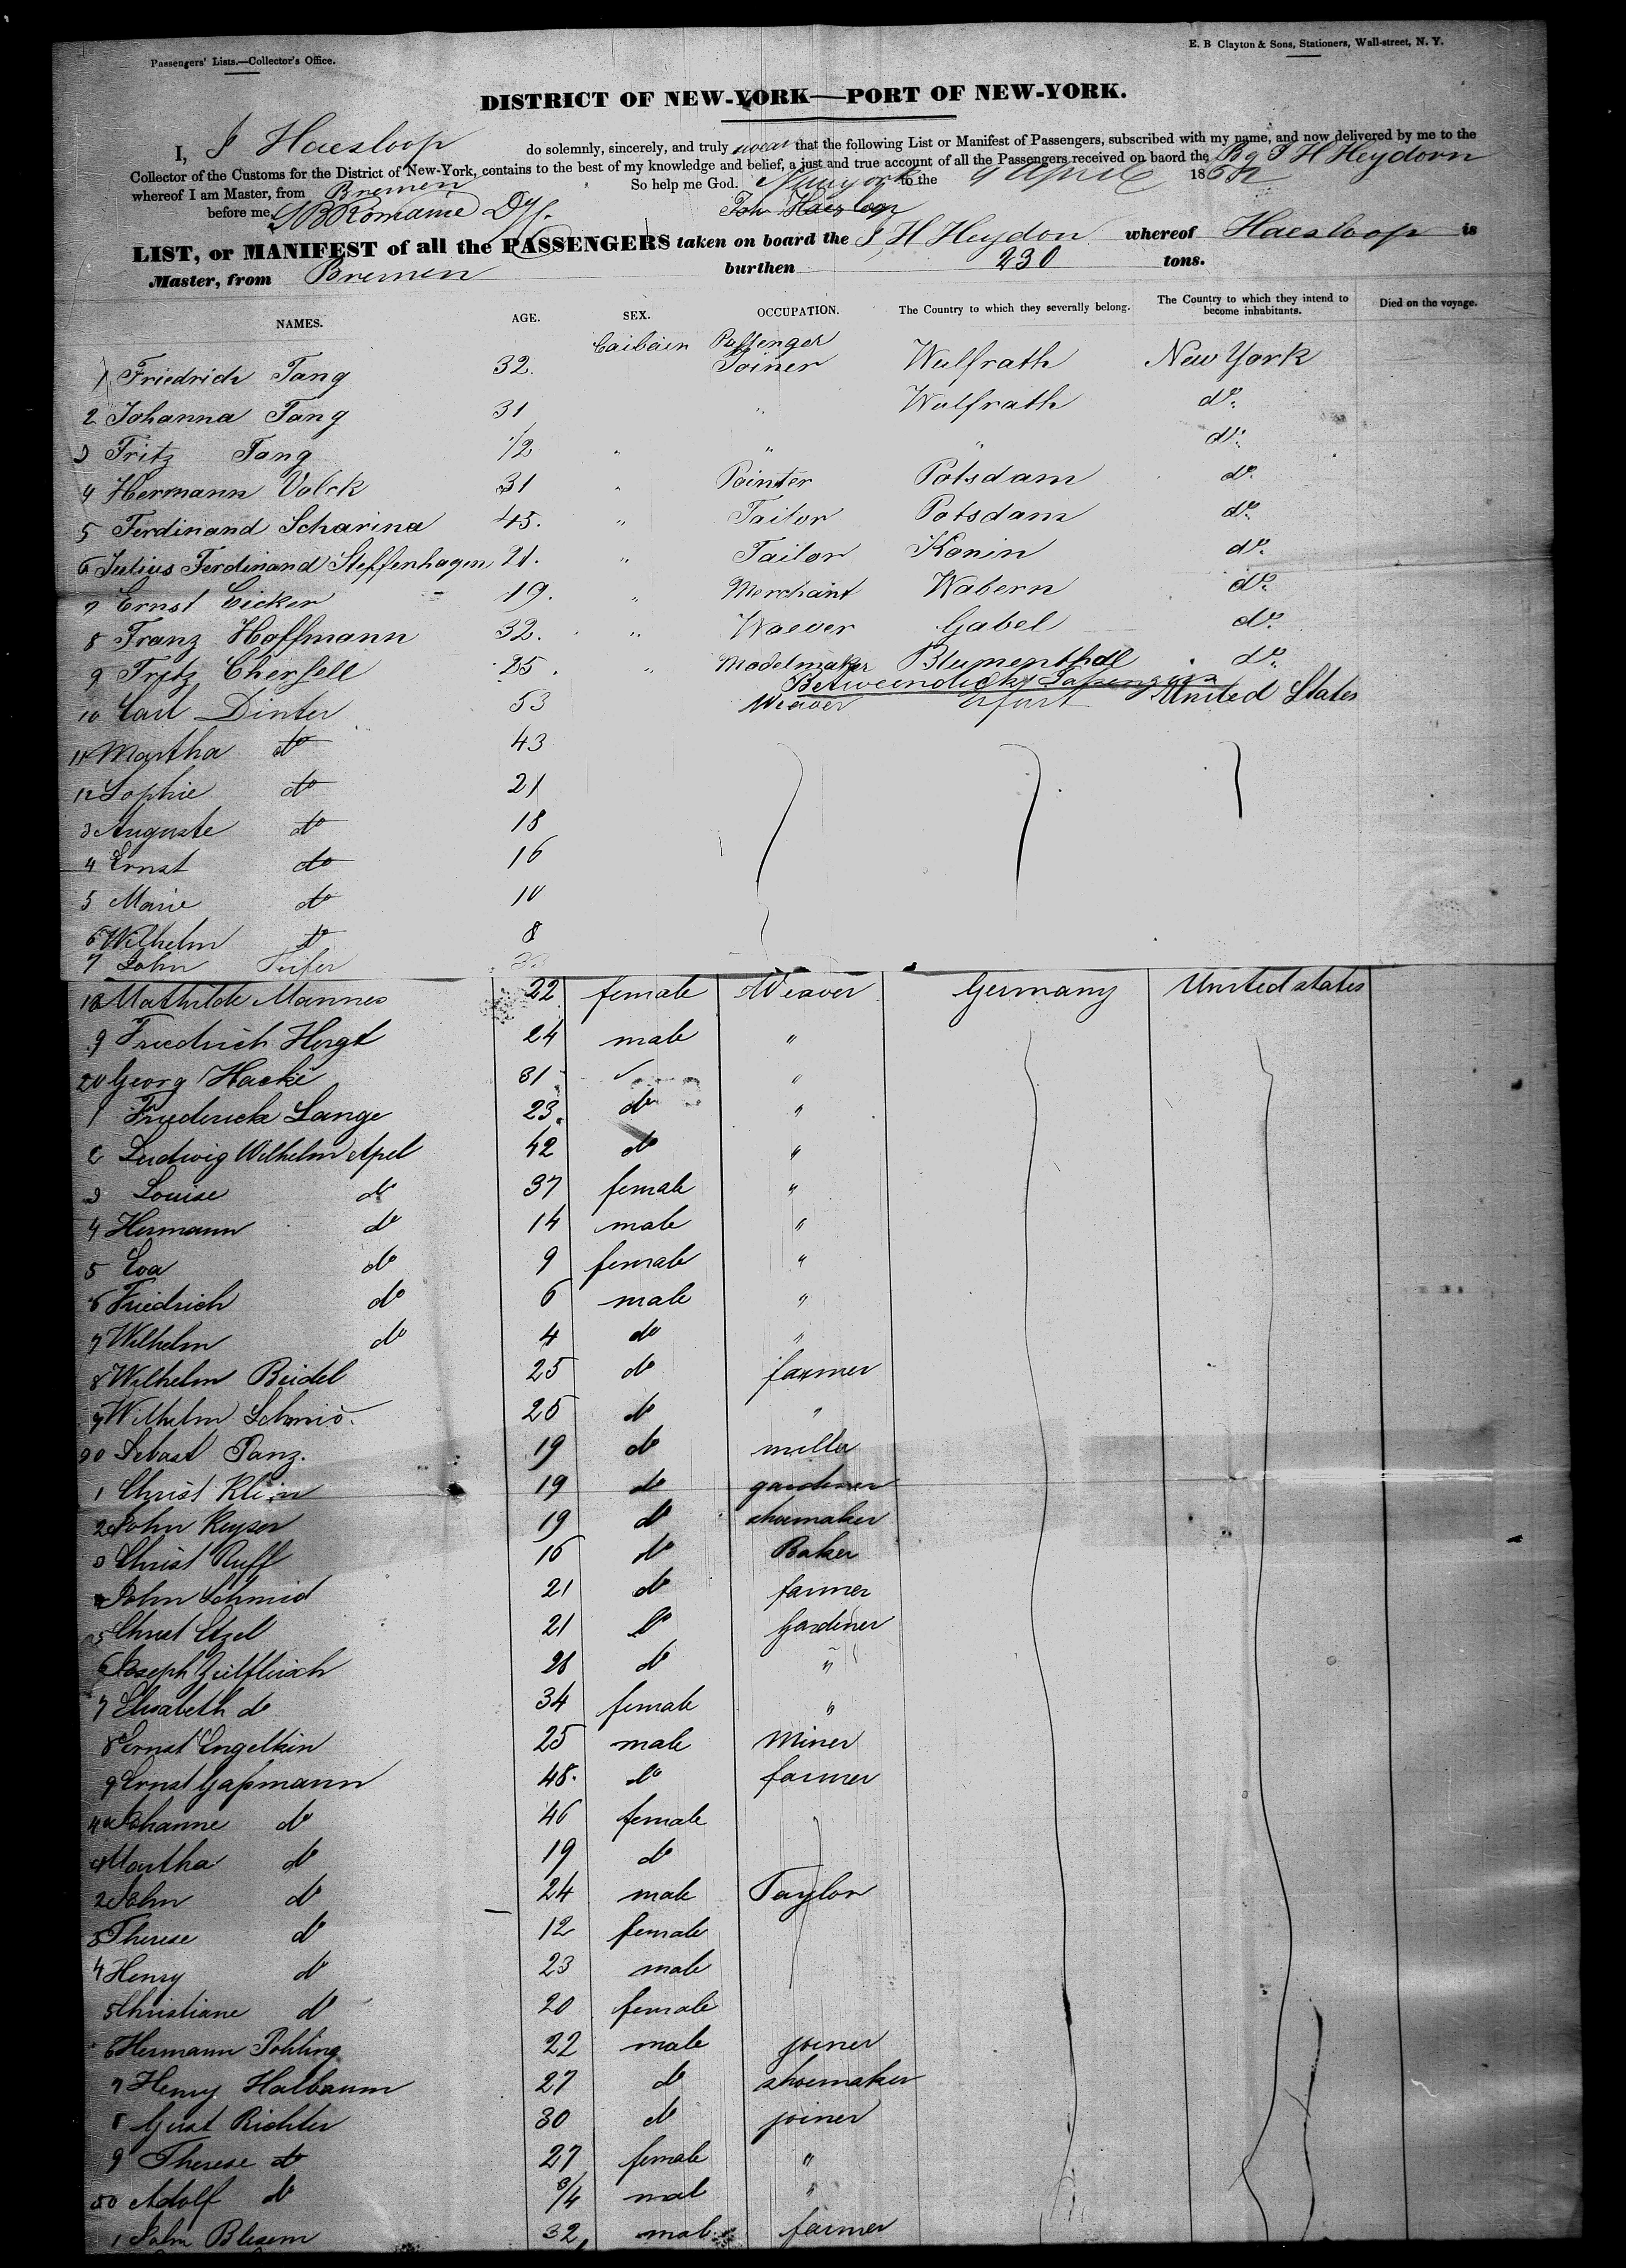 Passengers' Lists.—Collector's Office.
E. B Clayton & Sons, Stationers, Wall-street, N. Y.
DISTRICT OF NEW-YORK—PORT OF NEW-YORK.
I, J Haesloop do solemnly, sincerely, and truly swear that the following List or Manifest of Passengers, subscribed with my name, and now delivered by me to the
Collector of the Customs for the District of New-York, contains to the best of my knowledge and belief, a just and true account of all the Passengers received on baord the Bg J H Heydorn
whereof I am Master, from Bremen So help me God. to the 9 April 18
before me, Joh Haesloop
LIST, or MANIFEST of all the PASSENGERS taken on board the J H Heydon whereof Haesloop is
Master, from Bremen burthen 230 tons.
NAMES. AGE. SEX. OCCUPATION. The Country to which they severally belong. The Country to which they intend to become inhabitants. Died on the voyage.
Passenger
1 Friedrich Tang 32. Joiner Wulfrath New York
2 Johanna Tang 31 " Wulfrath do.
3 Fritz Tang 1/2 " " " do.
4 Hermann Volck 31 " Pointer Potsdam do.
5 Ferdinand Scharina 45. " Tailor Potsdam do.
6 Julius Ferdinand Steffenhagen 21. " Tailor Konin do.
7 Ernst Eicker 19. " Merchant Wabern do.
8 Franz Hoffmann 32. " Waever Gabel do.
9 Fritz 25. " Modelmaker Blumenthal do.
10 Carl Dinter 53 Weaver Erfurt United States
11 Martha do 43
12 Sophie do 21
3 Auguste do 18
4 Ernst do 16
5 Marie do 10
6 Wilhelm do 8
7 John 33
18 Mathilde Mannes 22 female Weaver Germany United states
9 Friedrich Hergt 24 male "
20 Georg Hacke 31 "
1 Friederick Lange 23 do "
2 Ludwig Wilhelm Apel 42 do "
3 Louise do 37 female "
4 Hermann do 14 male "
5 Eva do 9 female "
6 Friedrich do 6 male "
7 Wilhelm do 4 do "
8 Wilhelm Beidel 25 do farmer
9 Wilhelm Schmid 26 do "
30 Sebast Panz. 19 do miller
1 Christ Klein 19 do gardiner
2 John Keyser 19 do shoemaker
3 Christ Ruff 16 do Baker
4 John Schmid 21 do farmer
5 Christ Etzel 21 do Gardiner
6 Joseph 28 do "
7 Elisabeth do 34 female "
8 Ernst Engelkin 25 male Miner
9 Ernst Gassmann 48. do farmer
40 Johanne do 46 female
41 Martha do 19 do
2 John do 24 male Taylor
3 Therese do 12 female
4 Henry do 23 male
5 Christiane do 20 female
6 Hermann Pohling 22 male joiner
7 Henry Halbaum 27 do shoemaker
8 Gust Richter 30 do joiner
9 Therese do 27 female "
50 Adolf do 3/4 mal "
1 John Blesem 32 male farmer